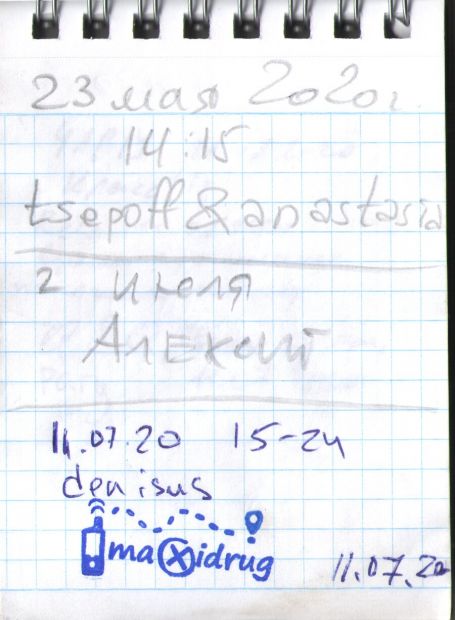 23 мая 2020г.
14:15
tsepoff & anastasia
2 июля
Алексей
11.07.20 15-24
denisus
maxidrug
11.07.20